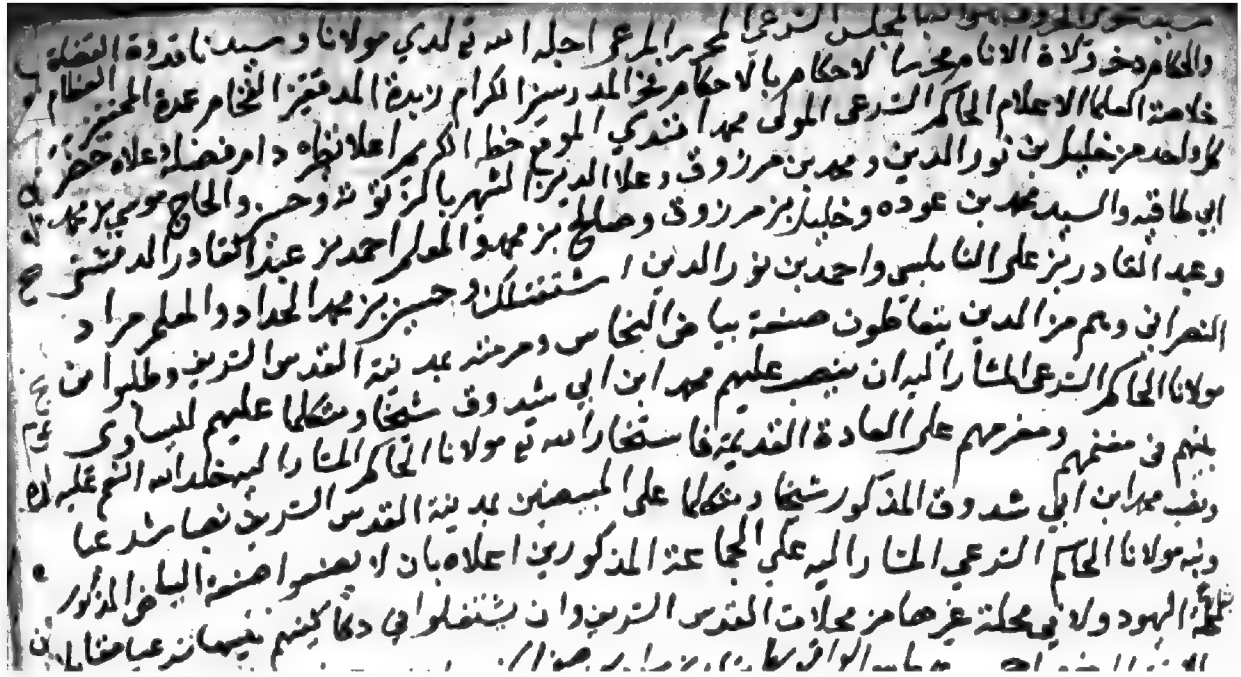 المجلس الشرعي المحرر المرعي اجله الله تع لدي مولانا وسيدنا قدوة القضاة
والحكام ذخر ولاة الانام محرر الاحكام بالاحكام فخر المدرسين الكرام زبدة المدققين الفخام عمدة المحققين العظام
خلاصة العلما الاعلام الحاكم الشرعي المولى محمد افندي الموقع خطه الكريم اعلا نظيره دام فضله وعلاه حضر
كل واحد من خليل بن نور الدين ومحمد بن مرزوق وعلا الدين الشهير وحسن والحاج موسي بن محمد
ابي طاقيه والسيد محمد بن عوده وخليل بن مرزوق وصالح بن محمد والمعلم احمد بن عبد القادر الدمشقي
وعبد القادر بن علي النابلسي واحمد بن نور الدين وحسين بن محمد الحداد والمعلم مراد
النصراني وهم من الذين يتعاطون صنعة بياض النحاس ومرمته بمدينة القدس الشريف وطلبوا من
مولانا الحاكم الشرعي المشار اليه ان ينصب عليهم محمد ابن ابي شدوق شيخا ومتكلما عليهم ليساوي
بينهم في مغنمهم ومغرمهم على العادة القديمة فاستخار الله تع مولانا الحاكم المشار اليه خلد الله النعم عليه
ونصب محمد ابن ابي شدوق المذكور شيخا ومتكلما على المبيضين بمدينة القدس الشريف نصبا شرعيا
ونبه مولانا الحاكم الشرعي المشار اليه علي الجماعة المذكورين اعلاه بان لا يصنعوا صنعة البياض المذكور
بمحلة اليهود ولا في محلة غيرها من محلات القدس الشريف وان يشتغلوا في دكاكينهم تنبيها شرعيا مقابلا